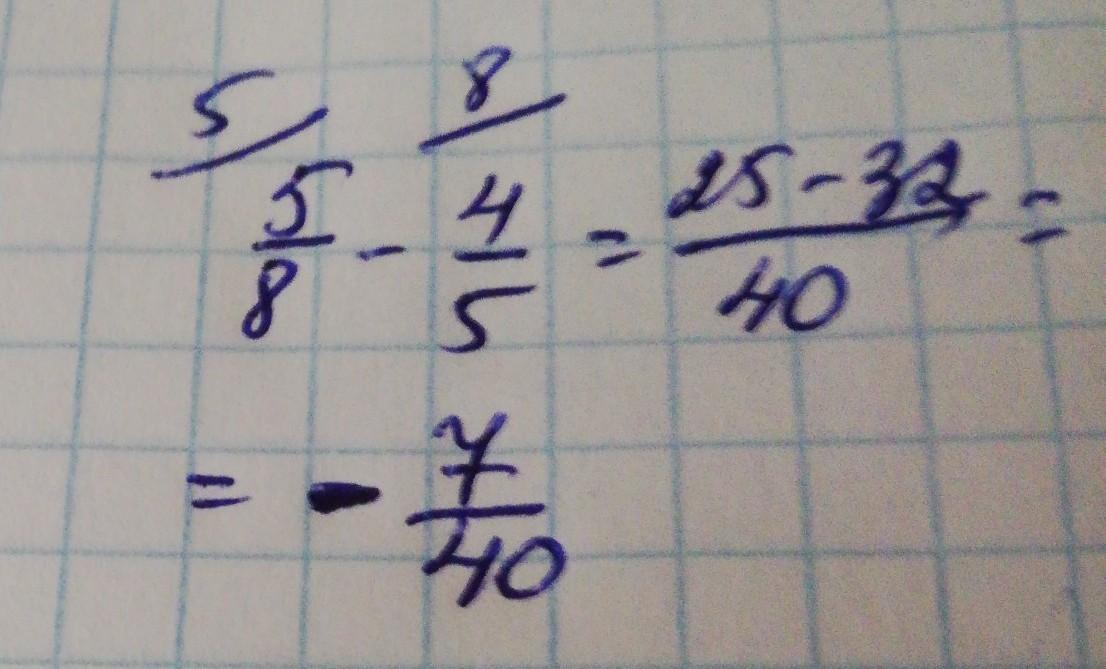 5/ 8/
5/8 - 4/5 = 25-32/40 =
= - 7/40